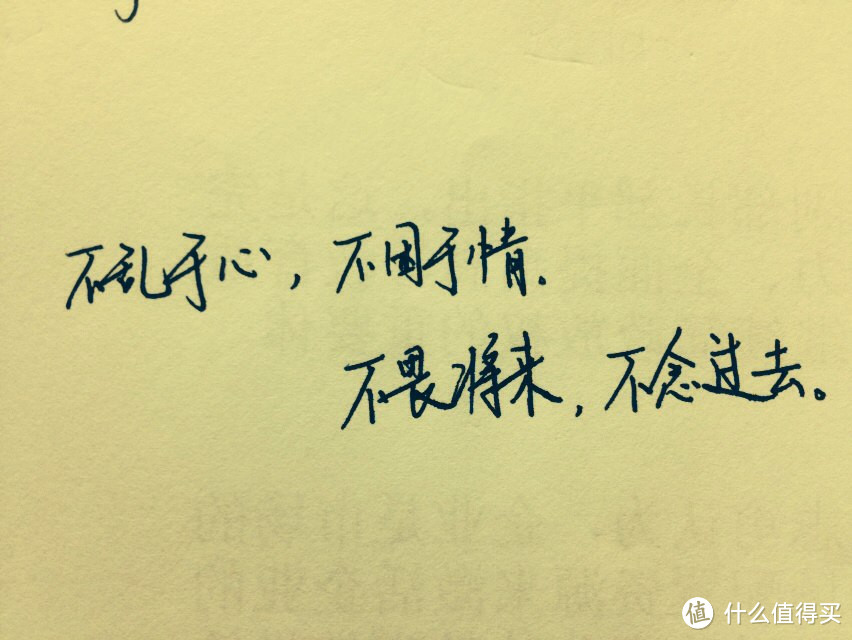 不乱于心，不困于情.
不畏将来，不念过去。
值 什么值得买